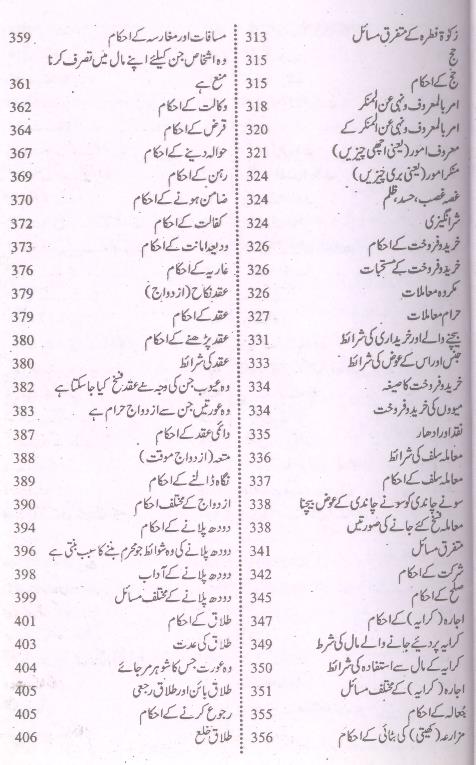 زکوٰۃ فطرہ کے متفرق مسائل 313
حج 315
حج کے احکام 315
امر بالمعروف و نہی عن المنکر 318
امر بالمعروف و نہی عن المنکر کے 320
معروف امور (یعنی اچھی چیزیں) 321
منکر امور (یعنی بری چیزیں) 324
غصہ غصب، حسد، ظلم 324
شرانگیزی 324
خرید و فروخت کے احکام 326
خرید و فروخت کے مستحبات 326
مکروہ معاملات 326
حرام معاملات 327
بیچنے والے اور خریداری کی شرائط 331
جنس اور اس کے عوض کی شرائط 333
خرید و فروخت کا صیغہ 334
میووں کی خرید و فروخت 334
نقد اور ادھار 335
معاملہ سلف کی شرائط 336
معاملہ سلف کے احکام 337
سونے چاندی کو سونے چاندی کے عوض بیچنا 338
معاملہ فسخ کئے جانے کی صورتیں 338
متفرق مسائل 341
شرکت کے احکام 342
صلح کے احکام 345
اجارہ (کرایہ) کے احکام 347
کرایہ پر دیئے جانے والے مال کی شرط 349
کرایہ کے مال سے استفادہ کی شرائط 350
اجارہ (کرایہ) کے مختلف مسائل 351
جُعالہ کے احکام 355
مزارعہ (کھیتی) کی بٹائی کے احکام 356
مساقات اور مغارسہ کے احکام 359
وہ اشخاص جن کیلئے اپنے مال میں تصرف کرنا
منع ہے 361
وکالت کے احکام 362
قرض کے احکام 364
حوالہ دینے کے احکام 367
رہن کے احکام 369
ضامن ہونے کے احکام 370
کفالت کے احکام 372
ودیعہ امانت کے احکام 373
عاریہ کے احکام 376
عقد نکاح (ازدواج) 379
عقد کے احکام 379
عقد پڑھنے کے احکام 380
عقد کی شرائط 380
وہ عیوب جن کی وجہ سے عقد فسخ کیا جا سکتا ہے 382
وہ عورتیں جن سے ازدواج حرام ہے 383
دائمی عقد کے احکام 387
متعہ (ازدواج موقت) 388
نگاہ ڈالنے کے احکام 389
ازدواج کے مختلف احکام 390
دودھ پلانے کے احکام 394
دودھ پلانے کی وہ شرائط جو محرم بننے کا سبب بنتی ہے 396
دودھ پلانے کے آداب 398
دودھ پلانے کے مختلف مسائل 399
طلاق کے احکام 401
طلاق کی عدت 403
وہ عورت جس کا شوہر مر جائے 404
طلاق بائن اور طلاق رجعی 405
رجوع کرنے کے احکام 405
طلاق خلع 406